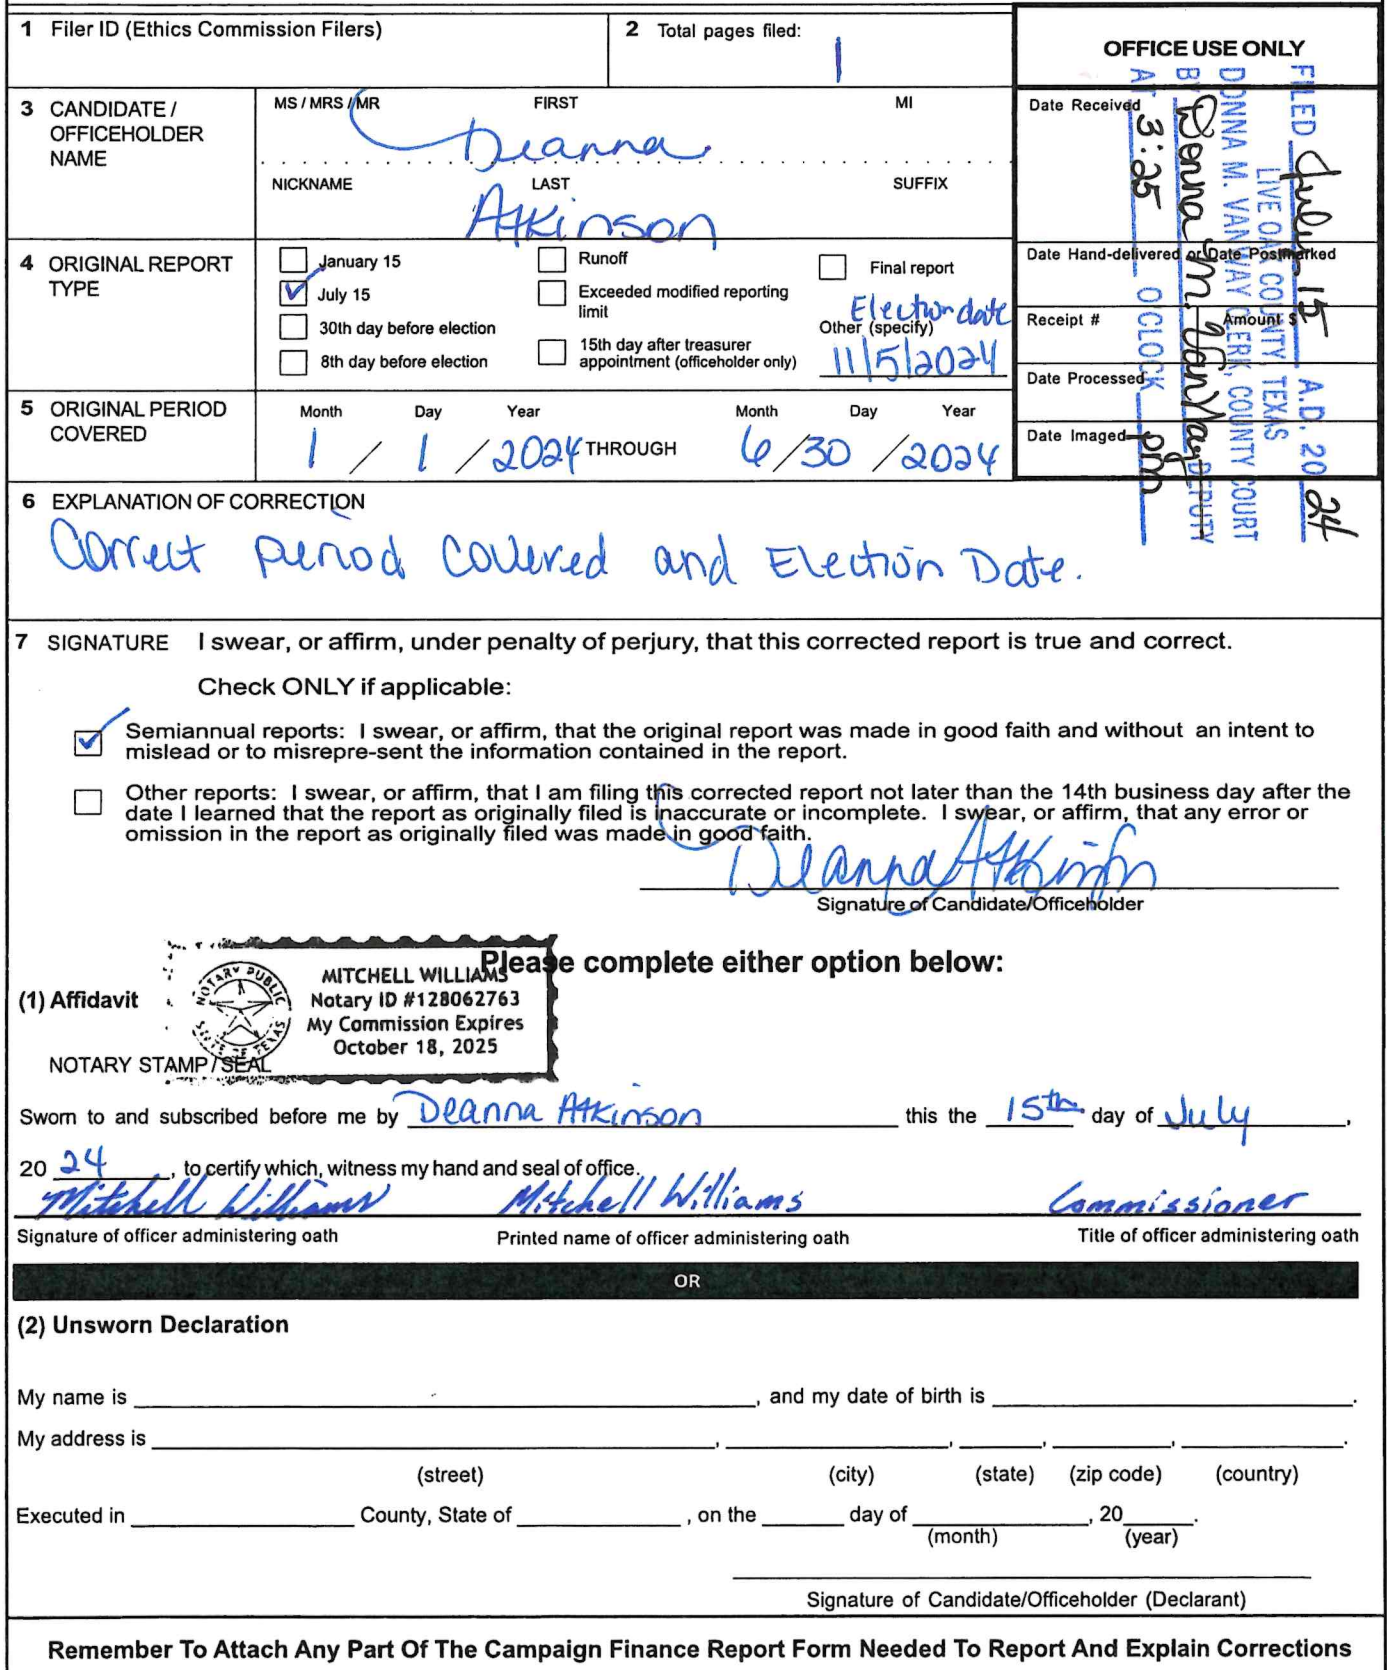 1 Filer ID (Ethics Commission Filers)
2 Total pages filed:
1
OFFICE USE ONLY
3 CANDIDATE / OFFICEHOLDER NAME
MS / MRS / MR FIRST MI
Deanna
NICKNAME LAST SUFFIX
Atkinson
Date Received
Date Hand-delivered or Date Postmarked
Receipt # Amount $
Date Processed
Date Imaged
FILED July 15 A.D. 20 24
LIVE OAK COUNTY, TEXAS
DONNA M. VANWAY CLERK, COUNTY COURT
BY Donna M. VanWay DEPUTY
AT 3:25 OCLOCK pm
4 ORIGINAL REPORT TYPE
January 15
July 15
30th day before election
8th day before election
Runoff
Exceeded modified reporting limit
15th day after treasurer appointment (officeholder only)
Final report
Election date
Other (specify)
11/5/2024
5 ORIGINAL PERIOD COVERED
Month Day Year Month Day Year
1 / 1 / 2024 THROUGH 6 / 30 / 2024
6 EXPLANATION OF CORRECTION
Correct period covered and Election Date.
7 SIGNATURE I swear, or affirm, under penalty of perjury, that this corrected report is true and correct.
Check ONLY if applicable:
Semiannual reports: I swear, or affirm, that the original report was made in good faith and without an intent to
mislead or to misrepre-sent the information contained in the report.
Other reports: I swear, or affirm, that I am filing this corrected report not later than the 14th business day after the
date I learned that the report as originally filed is inaccurate or incomplete. I swear, or affirm, that any error or
omission in the report as originally filed was made in good faith.
Deanna Atkinson
Signature of Candidate/Officeholder
Please complete either option below:
(1) Affidavit
NOTARY PUBLIC
STATE OF TEXAS
MITCHELL WILLIAMS
Notary ID #128062763
My Commission Expires
October 18, 2025
NOTARY STAMP / SEAL
Sworn to and subscribed before me by Deanna Atkinson this the 15th day of July,
20 24, to certify which, witness my hand and seal of office.
Mitchell Williams Mitchell Williams Commissioner
Signature of officer administering oath Printed name of officer administering oath Title of officer administering oath
OR
(2) Unsworn Declaration
My name is , and my date of birth is .
My address is , , , , .
(street) (city) (state) (zip code) (country)
Executed in County, State of , on the day of , 20 .
(month) (year)
Signature of Candidate/Officeholder (Declarant)
Remember To Attach Any Part Of The Campaign Finance Report Form Needed To Report And Explain Corrections